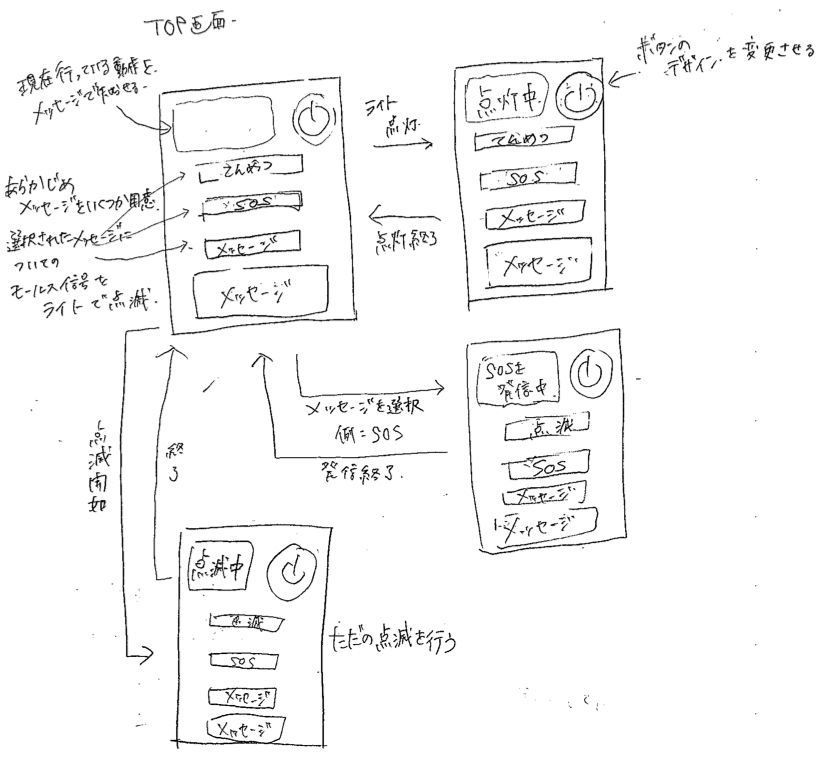 TOP画面
現在行っている動作を
メッセージで知らせる
あらかじめ
メッセージをいくつか用意
選択されたメッセージに
ついての
モールス信号を
ライトで点滅
てんめつ
SOS
メッセージ
メッセージ
ライト
点灯
点灯終了
点灯中
てんめつ
SOS
メッセージ
メッセージ
ボタンの
デザインを変更させる
点滅開始
終了
メッセージを選択
例=SOS
発信終了
SOSを
発信中
点滅
SOS
メッセージ
メッセージ
点滅中
点滅
SOS
メッセージ
メッセージ
ただの点滅を行う